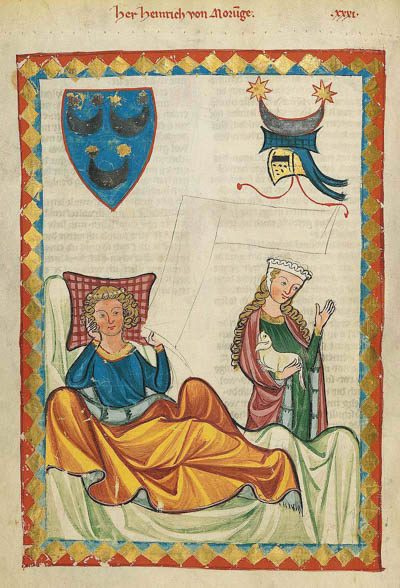 her heinrich von Morŭge.
·xxxi·